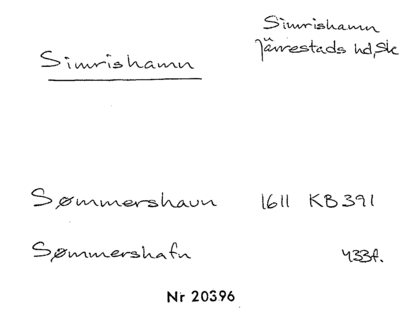 Simrishamn
Järrestads hd, Sk
Simrishamn
Sømmershavn 1611 KB 391
Sømmershafn 433f.
Nr 20396